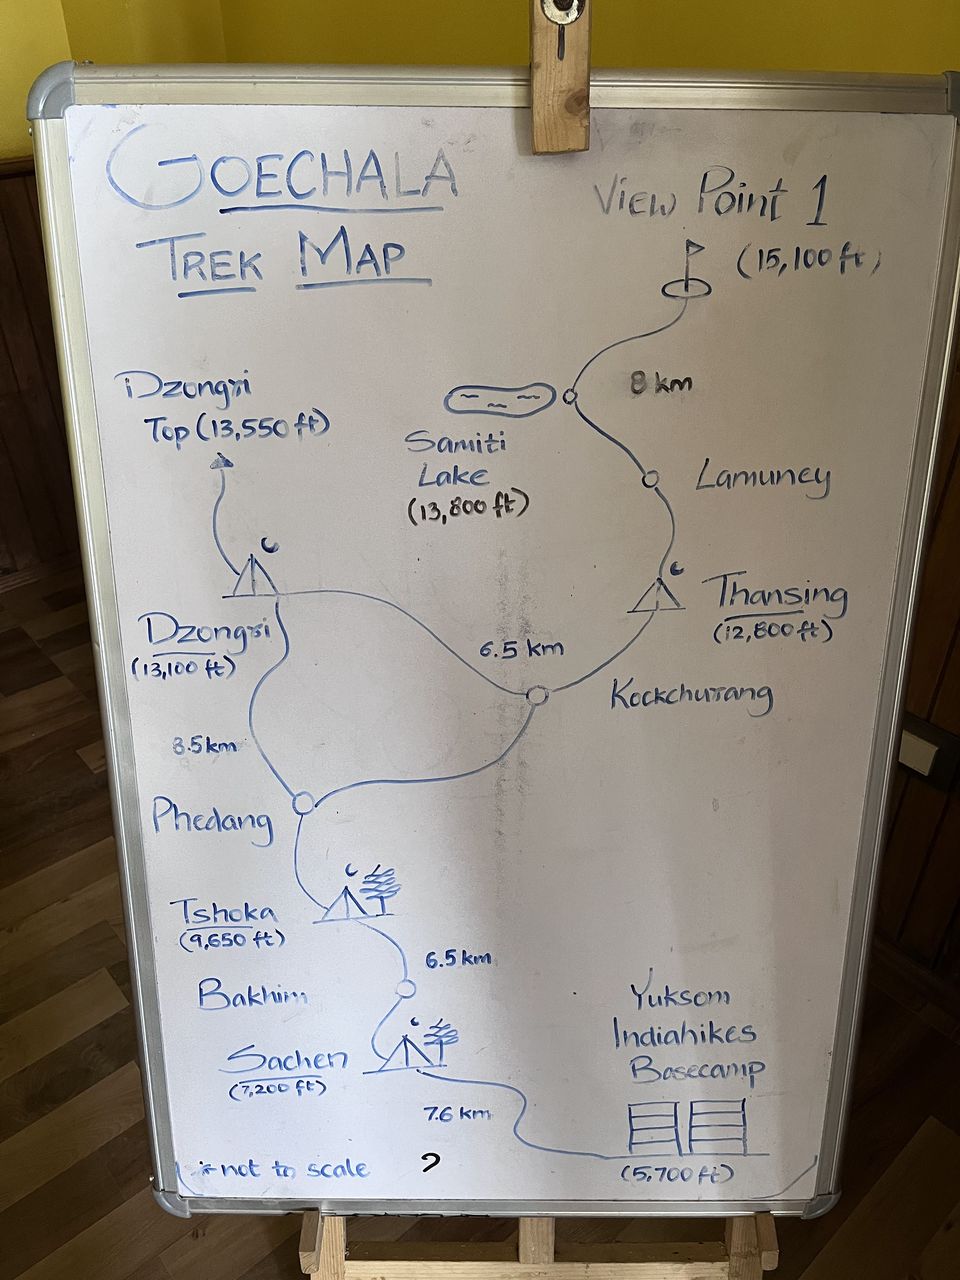 GOECHALA
TREK MAP
View Point 1
(15,100 ft)
Dzongri
Top (13,550 ft)
8 km
Samiti
Lake
(13,800 ft)
Lamuney
Thansing
(12,800 ft)
Dzongri
(13,100 ft)
6.5 km
Kockchurang
8.5km
Phedang
Tshoka
(9,650 ft)
6.5 km
Bakhim
Sachen
(7,200 ft)
Yuksom
Indiahikes
Basecamp
7.6 km
(5,700 ft)
*not to scale